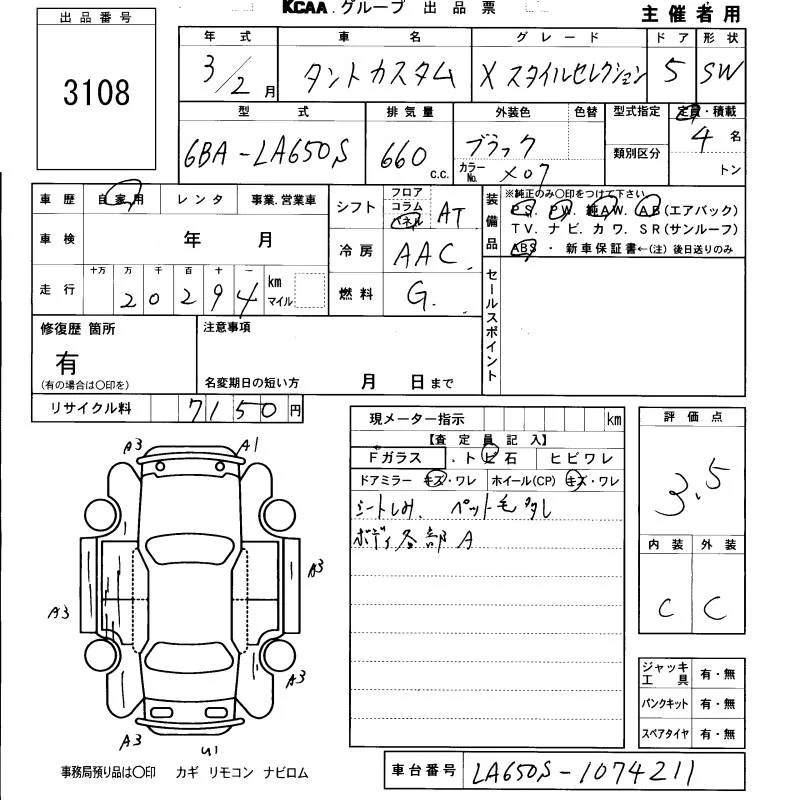 KCAA.グループ 出品票 主催者用
出品番号
3108
年式 車名 グレード ドア 形状
3/2月 タントカスタム X スタイルセレクション 5 SW
型式 排気量 外装色 色替 型式指定 定員・積載
6BA-LA650S 660 c.c. ブラック 類別区分 4名
カラーNo. X07 トン
車歴 自家用 レンタ 事業.営業車
シフト フロア コラム パネル AT
装備品 ※純正のみ○印をつけて下さい
PS. PW. 純AW. AB(エアバック)
TV. ナビ. カワ. SR(サンルーフ)
ABS ・ 新車保証書←(注) 後日送りのみ
車検 年 月
冷房 AAC
走行 十万 万 千 百 十 一
20294 km マイル
燃料 G.
セールスポイント
修復歴 箇所
有
(有の場合は○印を)
注意事項
名変期日の短い方 月 日まで
リサイクル料 7150円
現メーター指示 km
【査定員記入】
Fガラス .トビ石 ヒビワレ
ドアミラー キズ・ワレ ホイール(CP) キズ・ワレ
シートしみ. ペット毛多し
ボディ各部A
評価点
3.5
内装 外装
C C
A3 A1
A3
A3
A3
A3 U1
ジャッキ工具 有・無
パンクキット 有・無
スペアタイヤ 有・無
事務局預り品は○印 カギ リモコン ナビロム
車台番号 LA650S-1074211